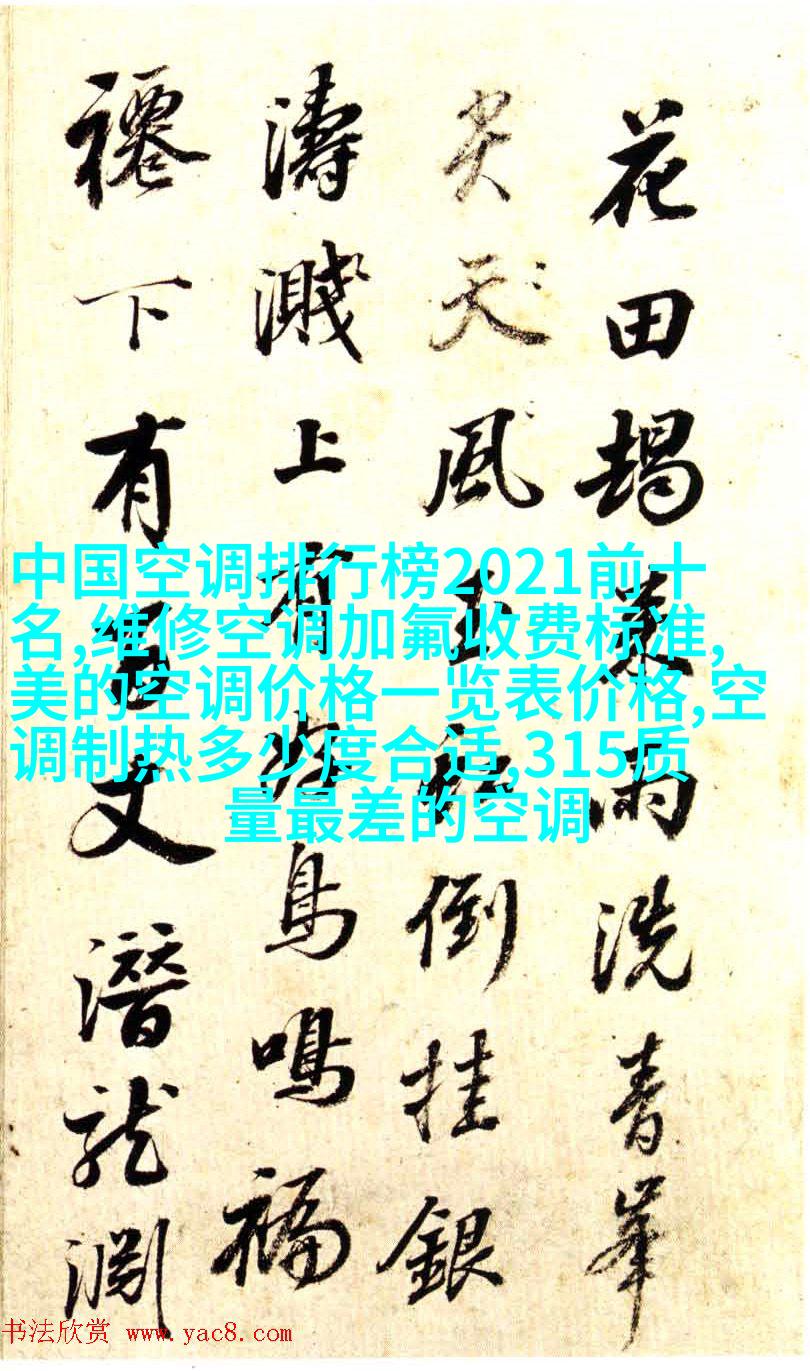 花田朅来雨洗青峯
尖天風倒挂銀
濤濺上有鳥鳴福
下有百丈潛龍淵
中国空调排行榜2021前十
名,维修空调加氟收费标准,
美的空调价格一览表价格,空
调制热多少度合适,315质
量最差的空调
书法欣赏 www.yac8.com